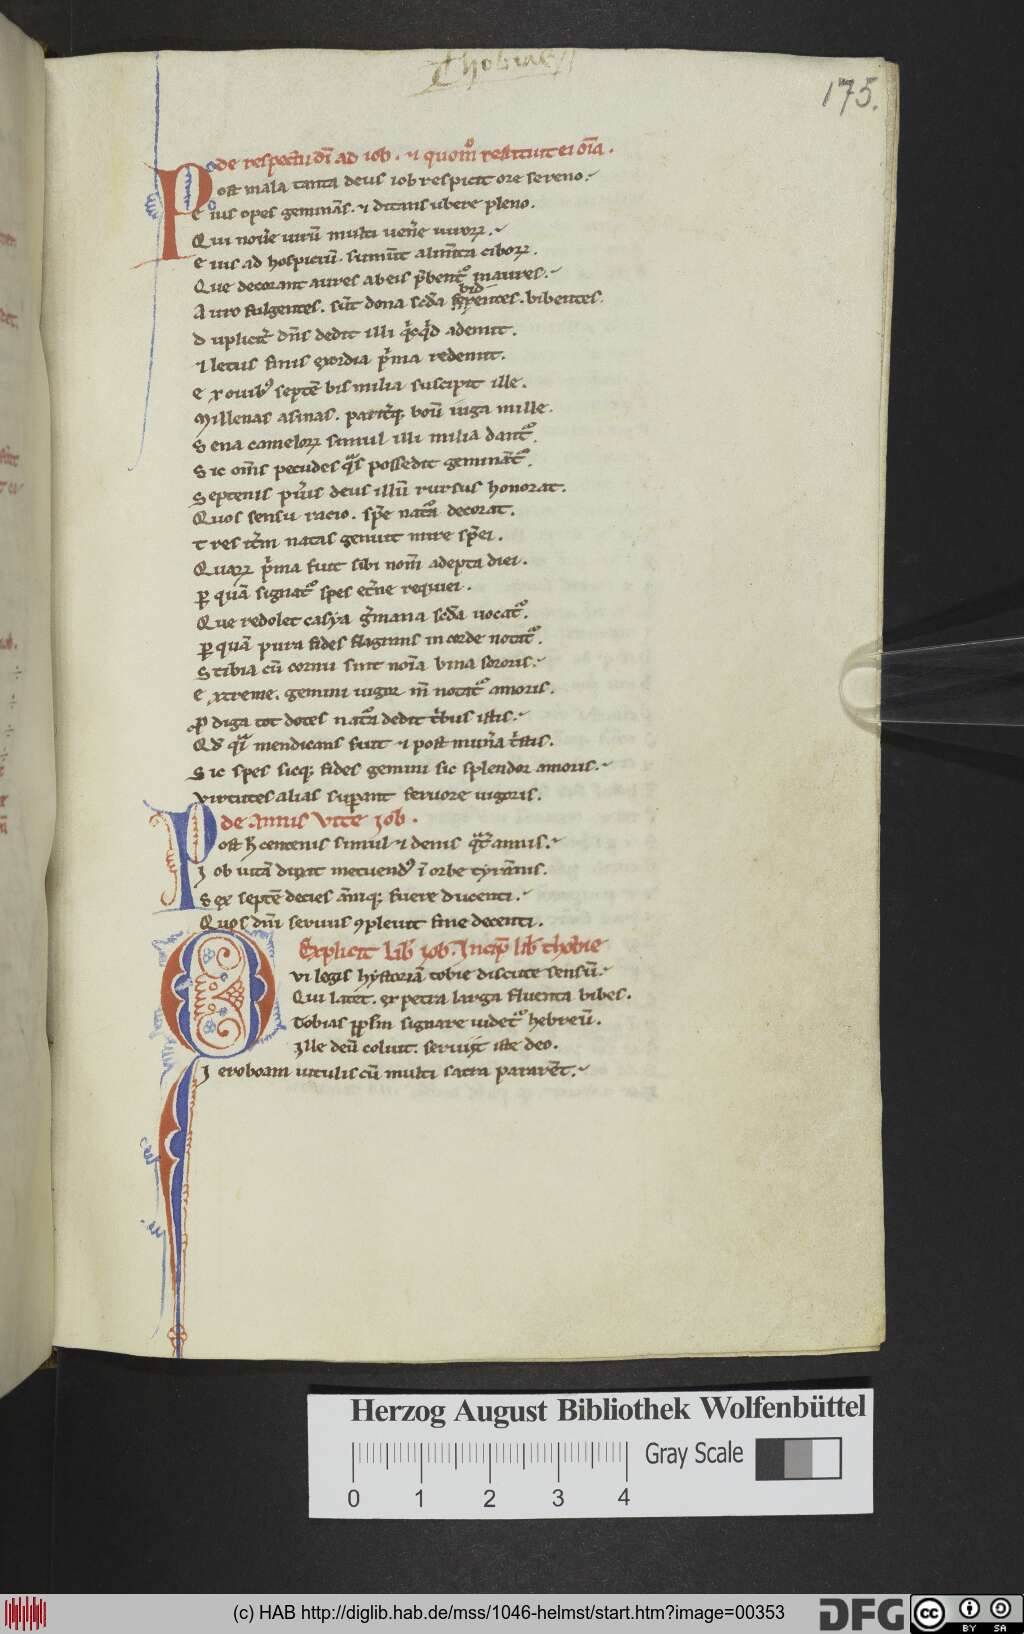 Thobiae
175.
de respectu dī ad iob. ⁊ quom̊ restituit ei oīa.
Post mala tanta deus iob respicit ore sereno.
Eius opes geminās. ⁊ ditans ubere pleno.
Qui nouͤe uirū multi uenͤe uiroꝝ.
Eius ad hospiciū. sumūt alim̄ta ciboꝝ.
Que decorant aures ab eis p̄bent᷑ inaures.
Auro fulgentes. sūt dona scd̄a bibentes.
Duplicit᷑ dn̄s dedit illi qͥcqͥd ademit.
⁊ letus finis exordia pͥma redemit.
Ex ouibꝰ septē bis milia suscipit ille.
Millenas asinas. parit᷑qꝫ boū iuga mille.
Sena cameloꝝ simul illi milia dant᷑.
Sic om̄s pecudes qͣs possedit gemināt᷑.
Septenis pu͛is deus illū rursus honorat.
Quos sensu racio. spe nat᷑a decorat.
Tres it͛m natas genuit mire spēi.
Quaꝝ pͥma fuit sibi nom̄ adepta diei.
ꝑ quā signat᷑ spes et͛ne requiei.
Que redolet casya g͛mana scd̄a uocat᷑.
ꝑ quā pura fides flagrans in corde notat᷑.
Stibia cū cornu sint noīa bina sororis.
Extreme. gemini uigor in̄ notat᷑ amoris.
ꝓdiga tot dotes nat᷑a dedit tͥbus istis.
Qd̄ qͣi mendicans fuit ⁊ post mun͛a tͥstis.
Sic spes sicqꝫ fides gemini sic splendor amoris.
Virtutes alias suꝑant feruore uigoris.
de annis vite Job.
Post h̄ centenis simul ⁊ denis qͣt͛ annis.
Job uitā duxit metuendꝰ ī orbe tyrānis.
Sex septē decies anniqꝫ fuere ducenti.
Quos dn̄i seruus ꝯpleuit fine decenti.
Explicit lib̄ iob. Incip̄ lib̄ thobie
Qui legis hystoriā tobie discute sensū.
Qui latet. ex petra larga fluenta bibes.
Tobias ppl̄m signare uidet᷑ hebreū.
Ille deū coluit. seruijt iste deo.
Jeroboam uitulis cū multi sacra pararēt.
Herzog August Bibliothek Wolfenbüttel
Gray Scale
0 1 2 3 4
(c) HAB http://diglib.hab.de/mss/1046-helmst/start.htm?image=00353
DFG
cc BY SA